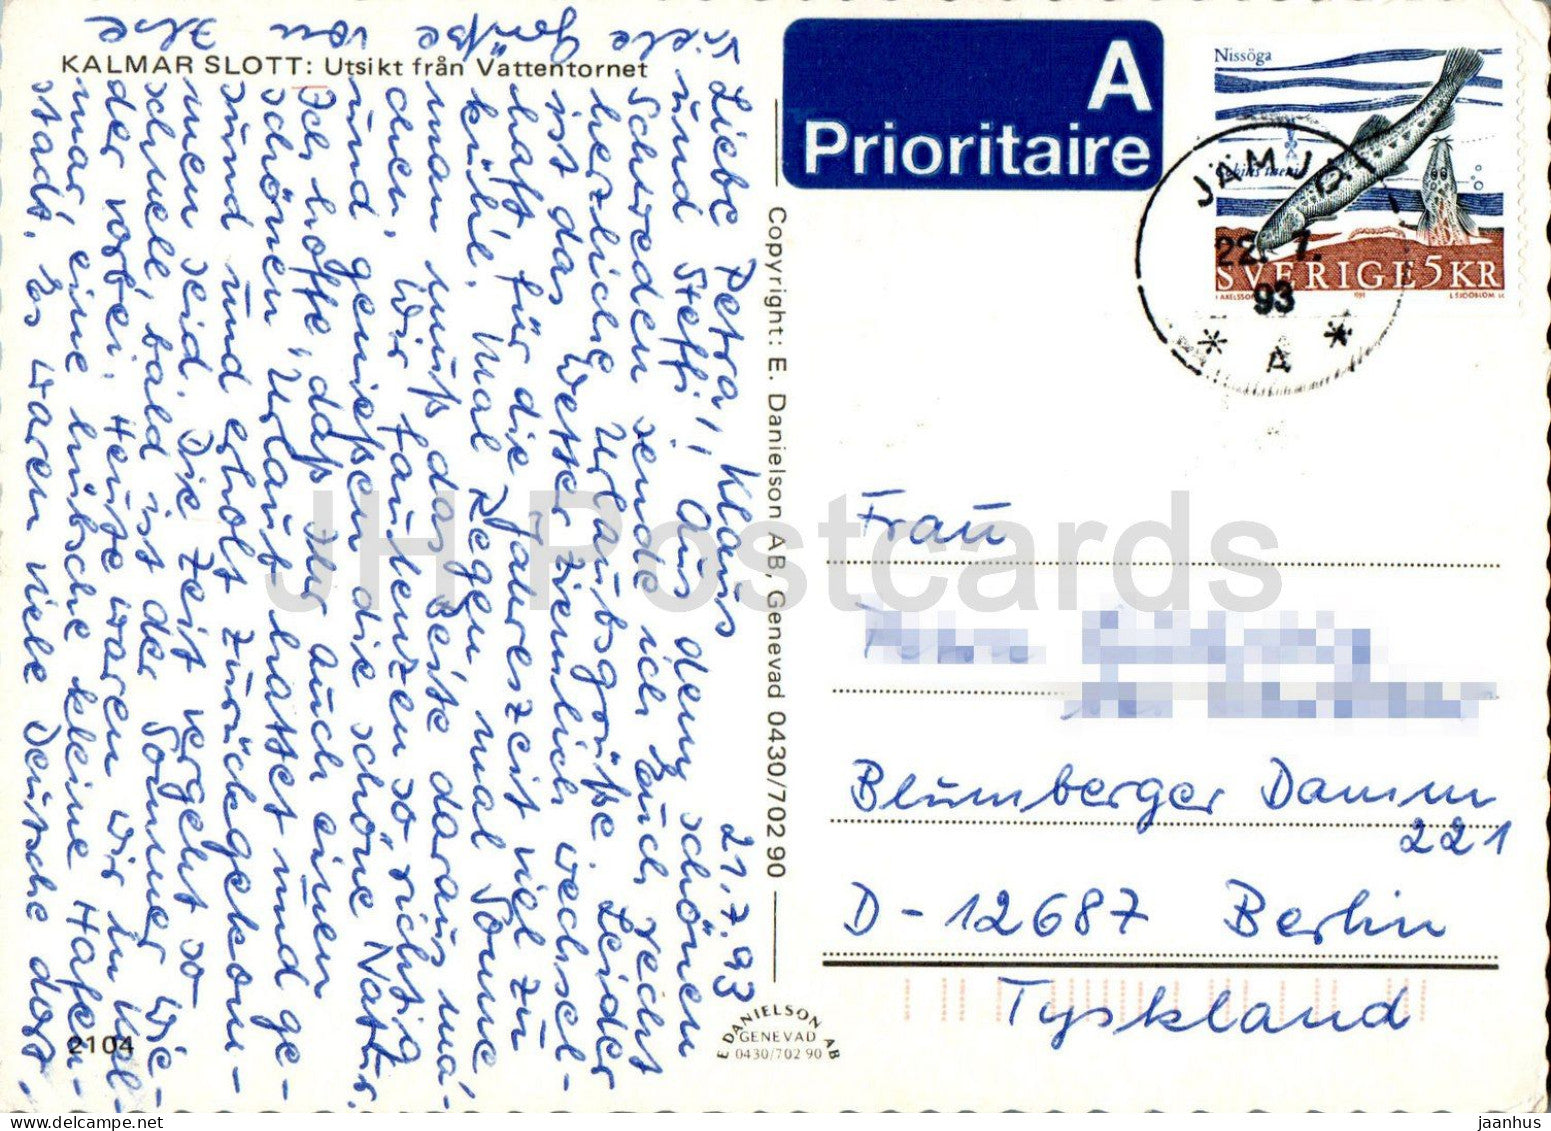 KALMAR SLOTT: Utsikt från Vattentornet
21.7.93
Liebe Petra, Klaus
und Steffi! Aus dem schönen
Schweden sende ich Euch recht
herzliche Urlaubsgrüße. Leider
ist das Wetter ziemlich wechsel-
haft für die Jahreszeit viel zu
kühl. Mal Regen mal Sonne
man muß das Beste daraus ma-
chen. Wir faulenzen so richtig
und genießen die schöne Natur.
Ich hoffe, daß Ihr auch einen
schönen Urlaub hattet und ge-
sund und erholt zurückgekom-
men seid. Die Zeit vergeht so
schnell, bald ist der Sommer wie-
der vorbei. Heute waren wir in Kal-
mar, eine hübsche kleine Hafen-
stadt. Es waren viele Deutsche dort.
Viele Grüße von Ilse
2104
Copyright: E. Danielson AB, Genevad 0430/702 90
E DANIELSON AB
GENEVAD
0430/702 90
A
Prioritaire
Nissöga
SVERIGE 5KR
I AXELSSON 1991 L SJÖÖBLOM SC
JÄMJÖ
22. 7.
93
* A *
Frau
Blumberger Damm
221
D-12687 Berlin
Tyskland
JH Postcards
www.delcampe.net
jaanhus